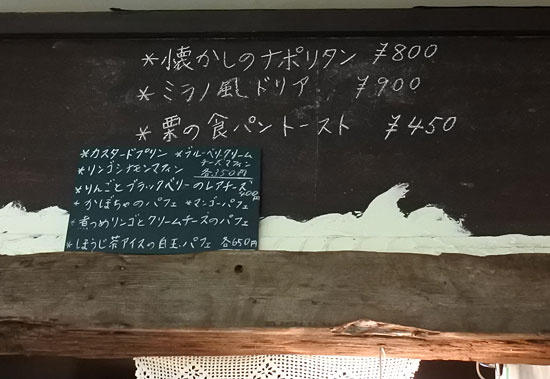 *懐かしのナポリタン ¥800
*ミラノ風ドリア ¥900
*栗の食パントースト ¥450
*カスタードプリン *ブルーベリークリーム
チーズマフィン
*リンゴシナモンマフィン 各350円
*りんごとブラックベリーのレアチーズ
400円
*かぼちゃのパフェ *マンゴーパフェ
*煮つめリンゴとクリームチーズのパフェ
*ほうじ茶アイスの白玉パフェ 各650円